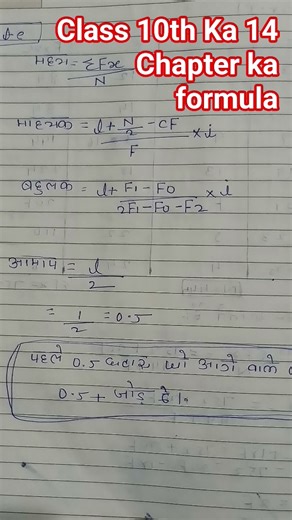 Class 10th Ka 14
Chapter ka
formula
= ΣFx
N
= l + N/2 - CF
F × i
बहुलक = l + F1 - F0
2F1 - F0 - F2 × i
= l
2
= 1
2 = 0.5
पहले 0.5 आगे वाले
0.5 + जोड़ दे।